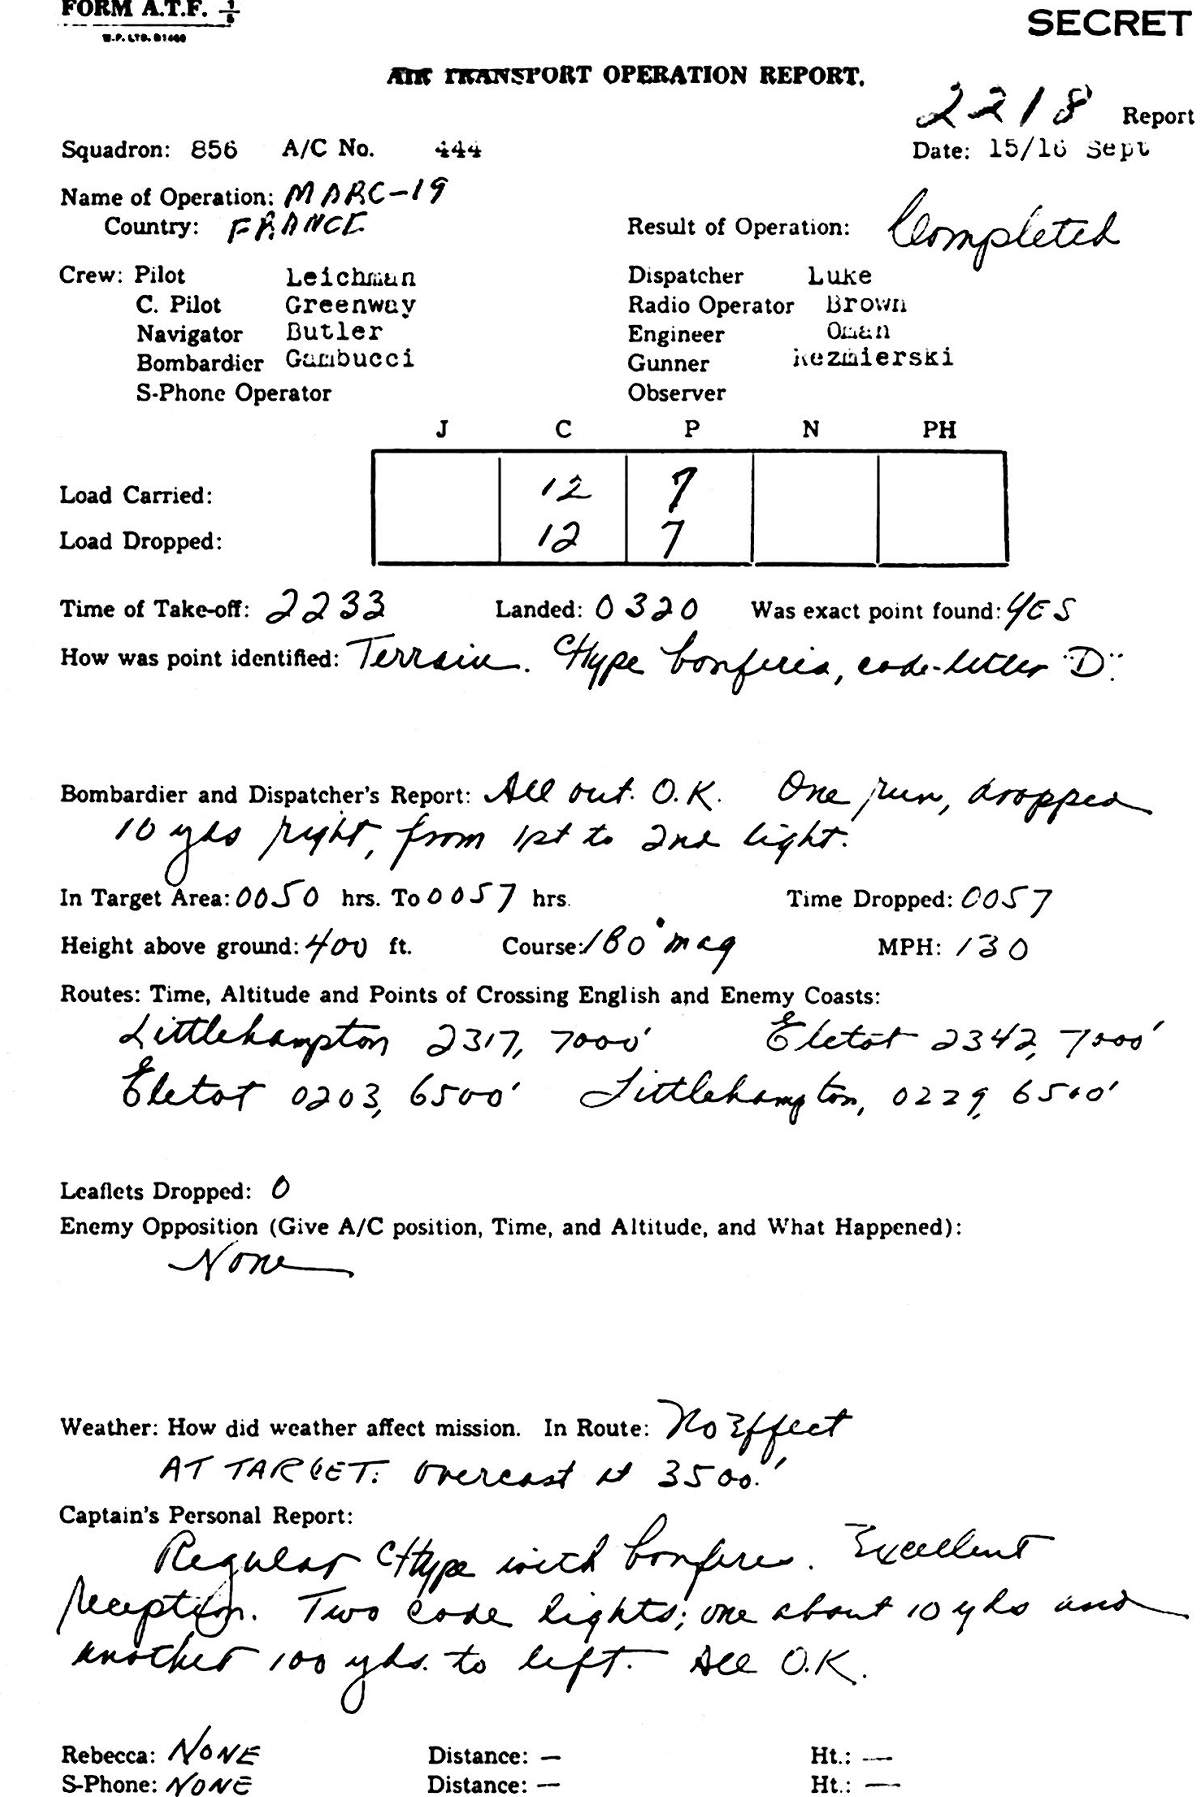 FORM A.T.F. 1/6
W.P. LTD. 81460
SECRET
AIR TRANSPORT OPERATION REPORT.
2218 Report
Squadron: 856 A/C No. 444 Date: 15/16 Sept
Name of Operation: MARC-19
Country: FRANCE Result of Operation: Completed
Crew: Pilot Leichman Dispatcher Luke
C. Pilot Greenway Radio Operator Brown
Navigator Butler Engineer Oman
Bombardier Gambucci Gunner Kezmierski
S-Phone Operator Observer
J C P N PH
Load Carried: 12 7
Load Dropped: 12 7
Time of Take-off: 2233 Landed: 0320 Was exact point found: YES
How was point identified: Terrain. C type bonfires, code-letter "D".
Bombardier and Dispatcher's Report: All out O.K. One run, dropped
10 yds right, from 1st to 2nd light.
In Target Area: 0050 hrs. To 0057 hrs. Time Dropped: 0057
Height above ground: 400 ft. Course: 180° mag MPH: 130
Routes: Time, Altitude and Points of Crossing English and Enemy Coasts:
Littlehampton 2317, 7000' Eletot 2342, 7000'
Eletot 0203, 6500' Littlehampton, 0229, 6500'
Leaflets Dropped: 0
Enemy Opposition (Give A/C position, Time, and Altitude, and What Happened):
None
Weather: How did weather affect mission. In Route: No Effect
AT TARGET: Overcast at 3500.'
Captain's Personal Report:
Regular C type with bonfires. Excellent
reception. Two code lights; one about 10 yds and
another 100 yds. to left. All O.K.
Rebecca: NONE Distance: — Ht.: —
S-Phone: NONE Distance: — Ht.: —